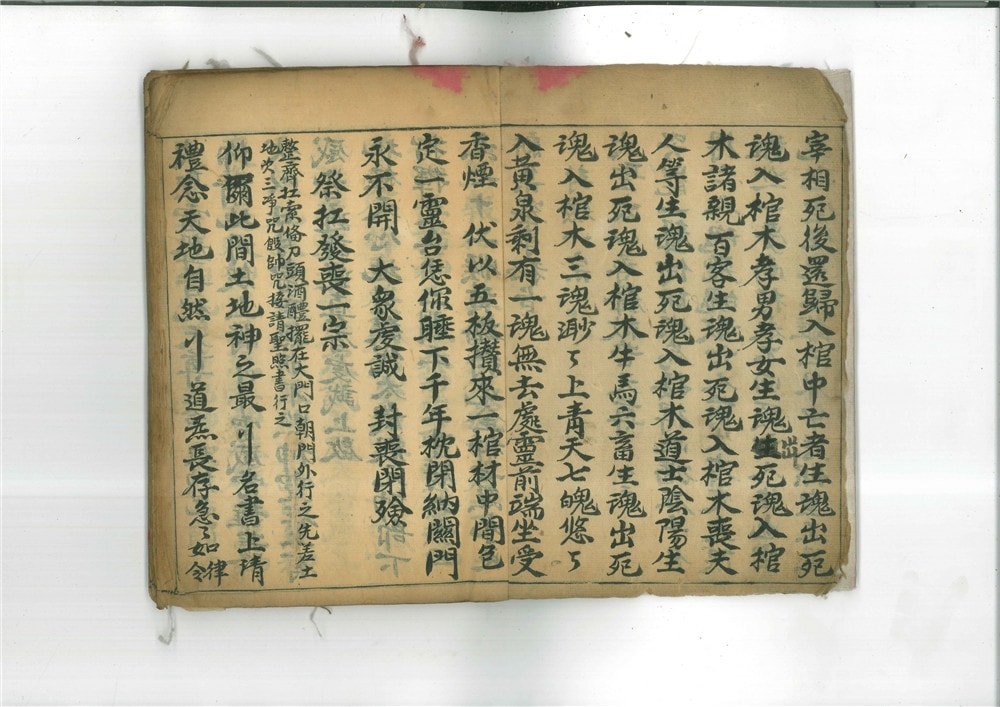 宰相死後還歸入棺中亡者生魂出死
魂入棺木孝男孝女生魂出死魂入棺
木諸親百客生魂出死魂入棺木喪夫
人等生魂出死魂入棺木道士陰陽生
魂出死魂入棺木牛馬六畜生魂出死
魂入棺木三魂渺々上青天七魄悠々
入黃泉剩有一魂無去處靈前端坐受
香煙 伏以五板攢來一棺材中間色
定一靈台恁你睡下千年枕閉納關門
永不開 大衆虔誠 封喪閉殮
祭扛發喪一宗
整齊扛索偹刀頭酒醴擺在大門口朝門外行之先差土
地次三凈咒師咒接請聖照書行之
仰 此間土地神之最 刂 名書上清
禮念天地自然刂道炁長存急々如律令